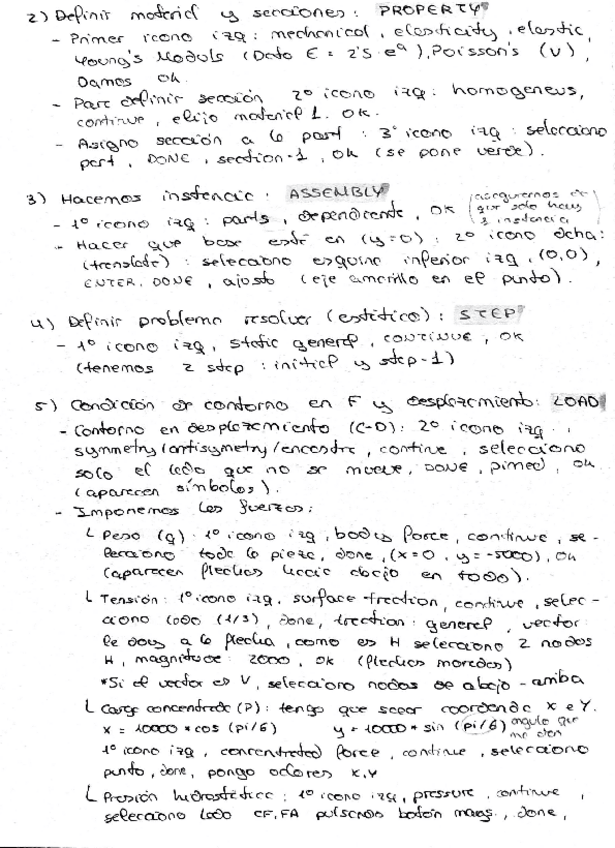 2) Definir material y secciones: PROPERTY
- Primer icono izq: mechanical, elasticity, elastic,
Young's Moduls (Dato E = 2'5 e⁹), Poisson's (ν),
Damos ok.
- Para definir sección 2º icono izq: homogeneus,
continue, elijo material 1. OK.
- Asigno sección a la part: 3º icono izq: selecciono
part, DONE, section-1, ok (se pone verde).
3) Hacemos instancia: ASSEMBLY
- 1º icono izq: parts, dependiente, OK (aseguremos de
que solo haya
instancia
- Hacer que base esté en (y=0): 2º icono dcha:
(translate): selecciono esquina inferior izq, (0,0),
ENTER, DONE, ajusto (eje amarillo en el punto).
4) Definir problema resolver (estático): STEP
- 1º icono izq, static general, CONTINUE, OK
(tenemos 2 step: initial y step-1)
5) Condición de contorno en F y desplazamiento: LOAD
- Contorno en desplazamiento (C-D): 2º icono izq.,
symmetry/antisymetry/encastre, continue, selecciono
solo el lado que no se mueve, DONE, pined, ok
(aparecen símbolos).
- Imponemos las fuerzas:
Peso (q): 1º icono izq, body force, continue, se-
lecciono toda la pieza, done, (x=0, y=-5000), OK
(aparecen flechas hacia abajo en todo).
Tensión: 1º icono izq, surface traction, continue, selec-
ciono lado (1/3), done, traction: general, vector
le doy a la flecha, como es H selecciono 2 nodos
H, magnitude: 2000, OK (flechas moradas)
*Si el vector es V, selecciono nodos de abajo - arriba
Carga concentrada (P): tengo que sacar coordenada X e Y.
x = 10000*cos (pi/6) y = 10000*sin (pi/6) angulo que
me den
1º icono izq, concentrated force, continue, selecciono
punto, done, pongo valores x,y
Presión hidrostática: 1º icono izq, pressure, continue,
selecciono lado CF, FA pulsando botón mayus, done,